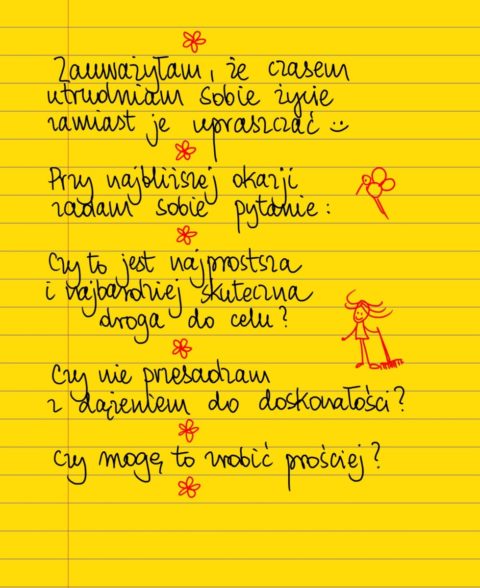 Zauważyłam, że czasem
utrudniam sobie życie
zamiast je upraszczać :)
Przy najbliższej okazji
zadam sobie pytanie:
Czy to jest najprostsza
i najbardziej skuteczna
droga do celu?
Czy nie przesadzam
z dążeniem do doskonałości?
Czy mogę to zrobić prościej?